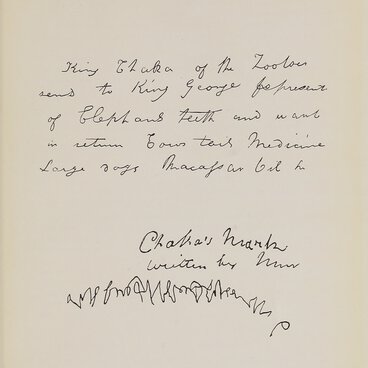 King Chaka of the Zoolus
send to King George a present
of Elephant teeth and want
in return Cows tails Medicine
Large dogs Macassar Oil
Chaka's Mark
written by